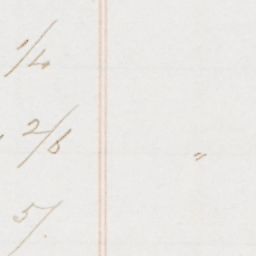 1/4
2/6 "
5/.